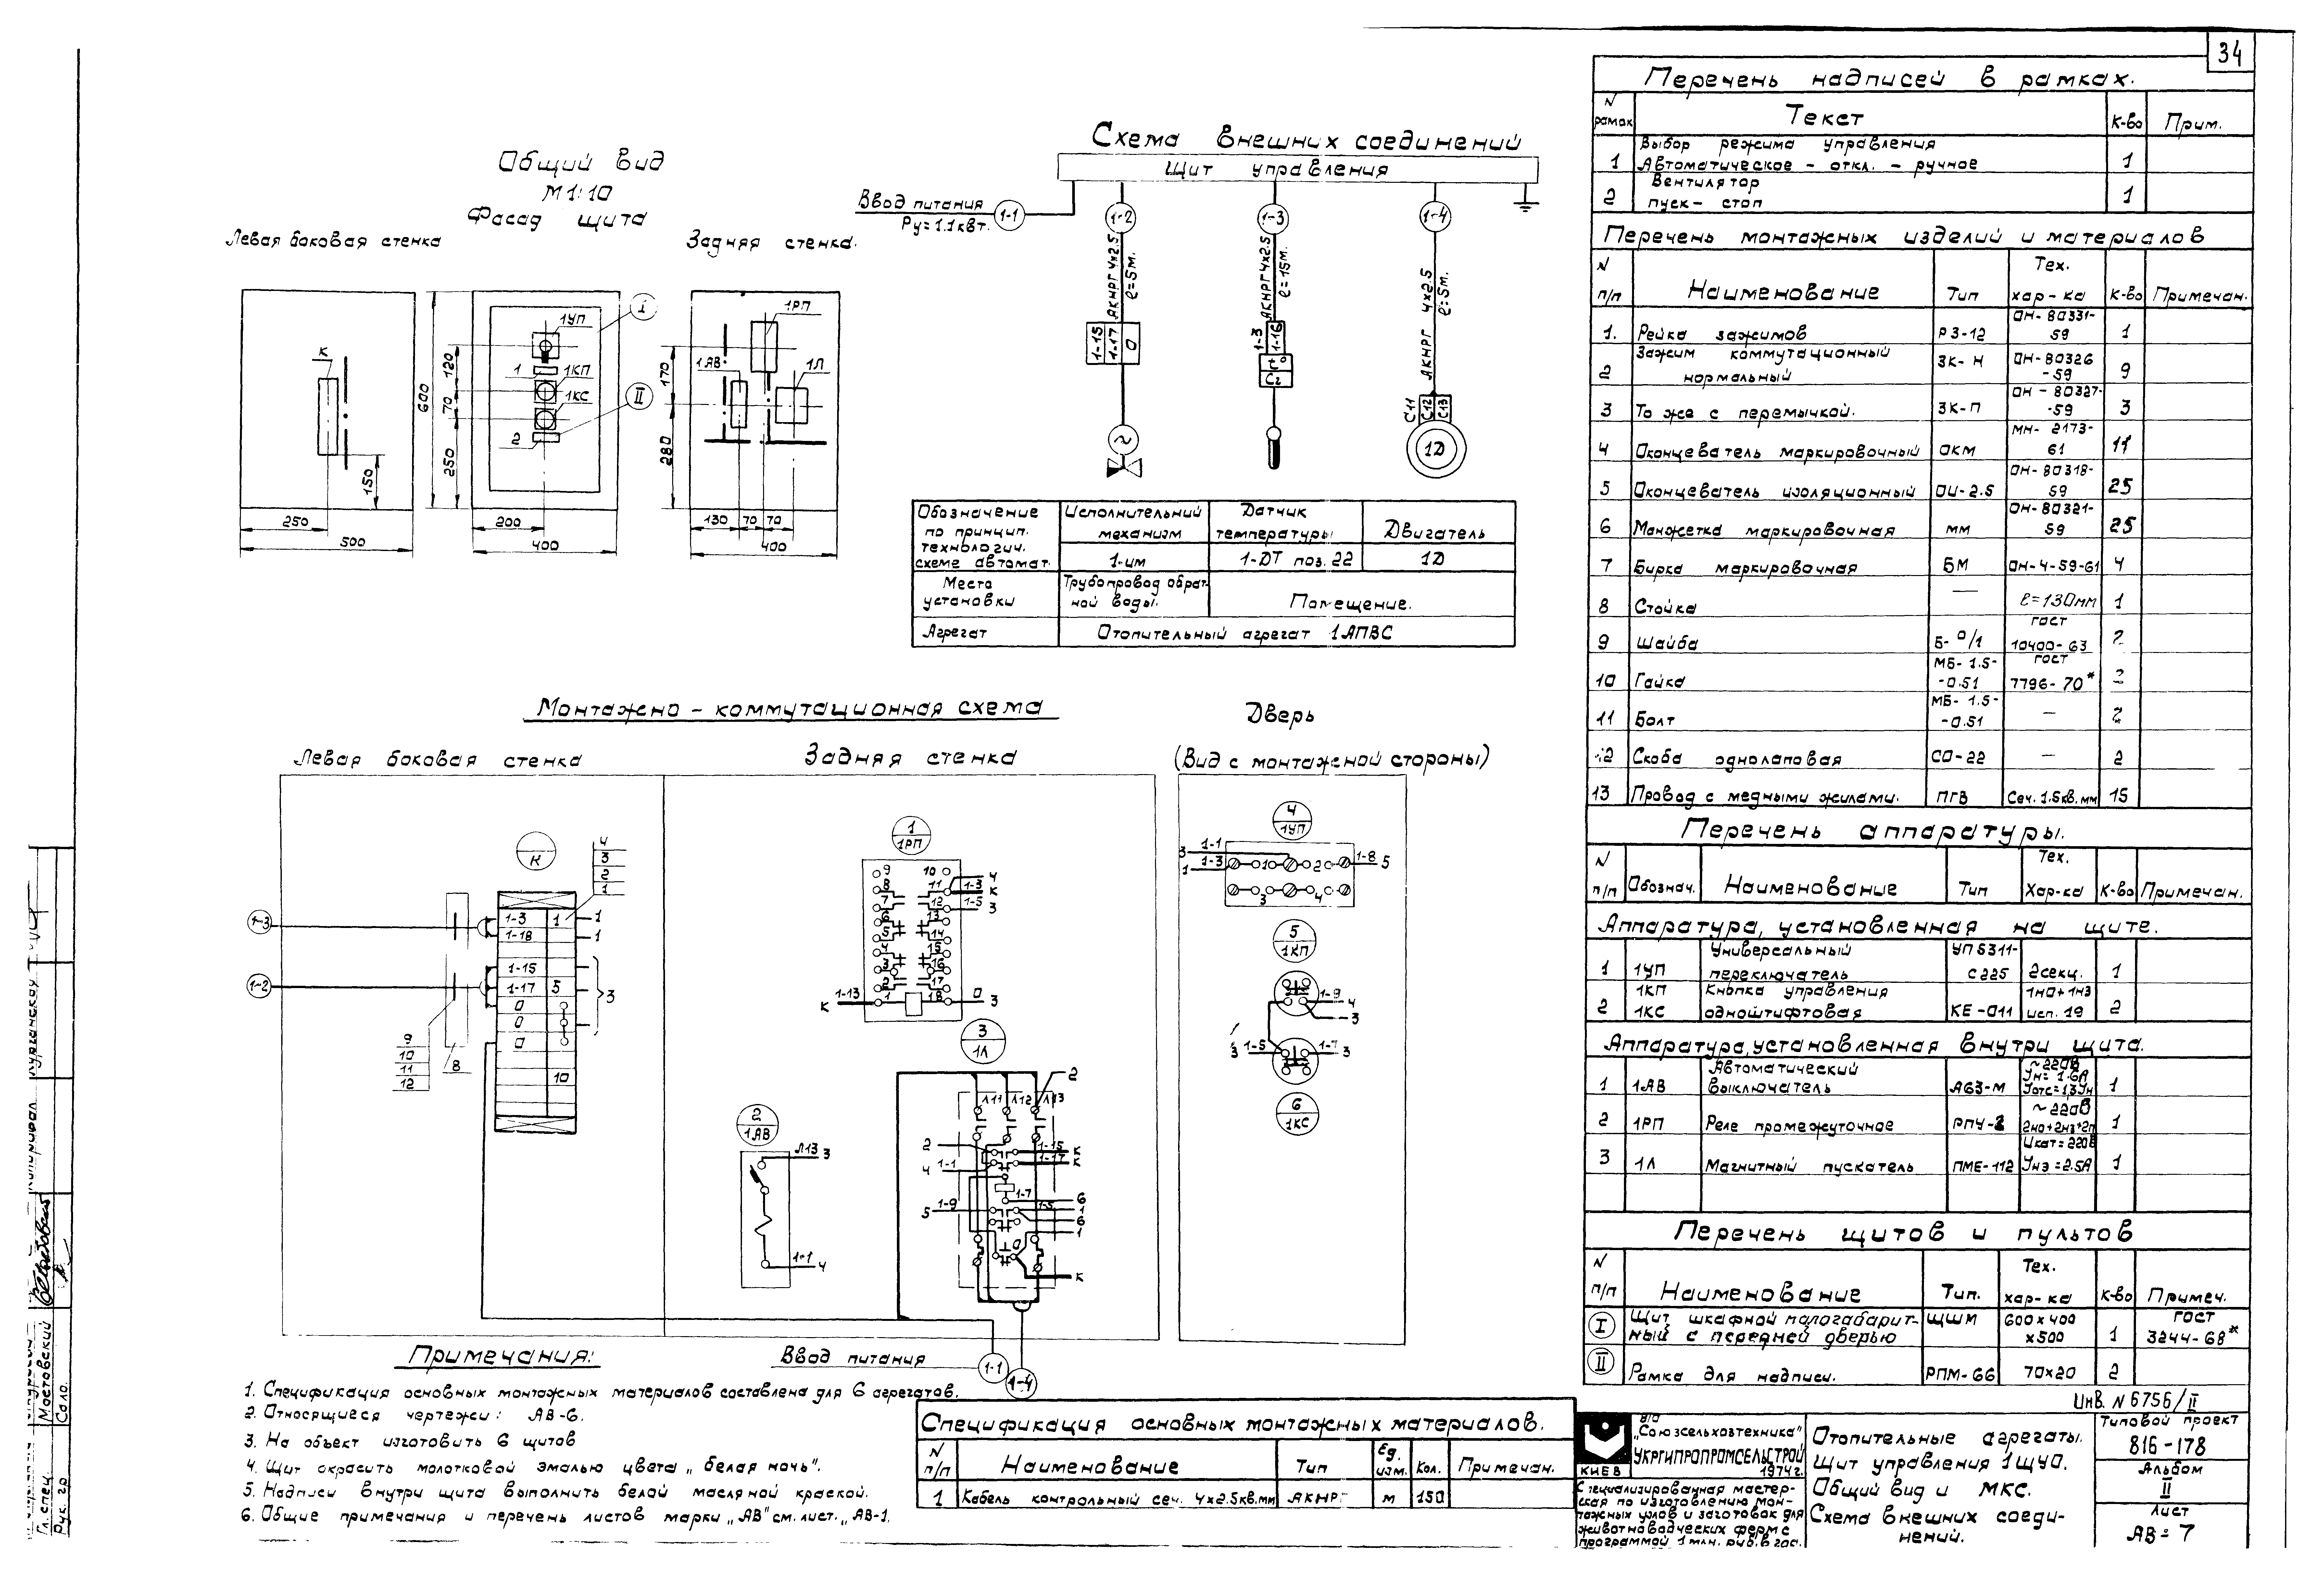 34
Общий вид
М 1:10
Фасад щита
Левая боковая стенка
Задняя стенка.
К
1УП
I
1
1КП
1КС
II
2
1РП
1АВ
1Л
600
120
70
250
150
170
280
250
500
200
400
130 70 70
400
Схема внешних соединений
Щит управления
Ввод питания
Ру=1.1квт.
1-1
1-2
1-3
1-4
АКНРГ 4х2.5
ℓ=5м.
АКНРГ 4х2.5
ℓ=15м.
АКНРГ 4х2.5
ℓ=5м.
1-15
1-17
0
1-3
1-16
С11
С12
С13
1Д
Обозначение по принцип. технологич. схеме автомат.
Исполнительный механизм
Датчик температуры
Двигатель
1-им
1-ДТ поз. 22
1Д
Место установки
Трубопровод обратной воды.
Помещение.
Агрегат
Отопительный агрегат 1АПВС
Монтажно - коммутационная схема
Левая боковая стенка
Задняя стенка
Дверь
(Вид с монтажной стороны)
К
4
3
2
1
1-3
1-3 1 1
1-18 1
1-2
1-15
1-17 5
3
0
0
0
10
9
10
11
12
8
1
1РП
9 10
8 11 1-3 4 К
7 12 1-5 3
6 13
5 14
4 15
3 16
2 17
К 1-13 1 18 0 3
3
1Л
2
1АВ
Л13 3
1-1 4
Л11 Л12 Л13 2
2 1-15 К
4 1-1 1-17 К
1-7 6
5 1-9 1-5 1
6
1
0
К
4
1УП
3 1-1
1 1-3 1 2 1-8 5
3 4
5
1КП
1-9 4
3
3 1-5 1-7 3
6
1КС
Ввод питания
1-1
1-4
Примечания:
1. Спецификация основных монтажных материалов составлена для 6 агрегатов.
2. Относящиеся чертежи: АВ-6.
3. На объект изготовить 6 щитов
4. Щит окрасить молотковой эмалью цвета „белая ночь".
5. Надписи внутри щита выполнить белой масляной краской.
6. Общие примечания и перечень листов марки „АВ" см. лист. „АВ-1.
Спецификация основных монтажных материалов.
N п/п Наименование Тип Ед. изм. Кол. Примечан.
1 Кабель контрольный сеч. 4х2.5кв.мм АКНРГ м 150
Перечень надписей в рамках.
N рамок Текст К-во Прим.
1 Выбор режима управления
Автоматическое - откл. - ручное 1
2 Вентилятор
пуск - стоп 1
Перечень монтажных изделий и материалов
N п/п Наименование Тип Тех. хар-ка К-во Примечан.
1. Рейка зажимов РЗ-12 ОН-80331-59 1
2 Зажим коммутационный нормальный ЗК-Н ОН-80326-59 9
3 То же с перемычкой. ЗК-П ОН-80327-59 3
4 Оконцеватель маркировочный ОКМ МН-2173-61 11
5 Оконцеватель изоляционный ОИ-2.5 ОН-80318-59 25
6 Манжетка маркировочная ММ ОН-80321-59 25
7 Бирка маркировочная БМ ОН-4-59-61 4
8 Стойка — ℓ=130мм 1
9 Шайба Б-0/1 ГОСТ 10400-63 2
10 Гайка МБ-1.5-0.51 ГОСТ 7796-70* 2
11 Болт МБ-1.5-0.51 — 2
12 Скоба однолаповая СО-22 — 2
13 Провод с медными жилами. ПГВ Сеч. 1.5кв.мм 15
Перечень аппаратуры.
N п/п Обознач. Наименование Тип Тех. Хар-ка К-во Примечан.
Аппаратура, установленная на щите.
1 1УП Универсальный переключатель УП5311-С225 2секц. 1
2 1КП 1КС Кнопка управления одноштифтовая КЕ-011 1но+1нз исп. 19 2
Аппаратура, установленная внутри щита.
1 1АВ Автоматический выключатель А63-М ~220В Jн=1.6А Jотс=1,3Jн 1
2 1РП Реле промежуточное РПУ-2 ~220В 2но+2нз+2п 1
3 1Л Магнитный пускатель ПМЕ-112 Uкат=220В Jнэ=2.5А 1
Перечень щитов и пультов
N п/п Наименование Тип. Тех. хар-ка К-во Примеч.
I Щит шкафной малогабаритный с передней дверью ЩШМ 600х400х500 1 ГОСТ 3244-68*
II Рамка для надписи. РПМ-66 70х20 2
Инв. N 6756/II
В/О
„Союзсельхозтехника"
УКРГИПРОПРОМСЕЛЬСТРОЙ
КИЕВ 1974г.
Специализированная мастерская по изготовлению монтажных узлов и заготовок для животноводческих ферм с программой 1 млн. руб. в год.
Отопительные агрегаты.
Щит управления 1ЩУО.
Общий вид и МКС.
Схема внешних соединений.
Типовой проект
816-178
Альбом
II
Лист
АВ-7
Копировал Курганская
Гл. спец. Мастовский
Рук. гр.